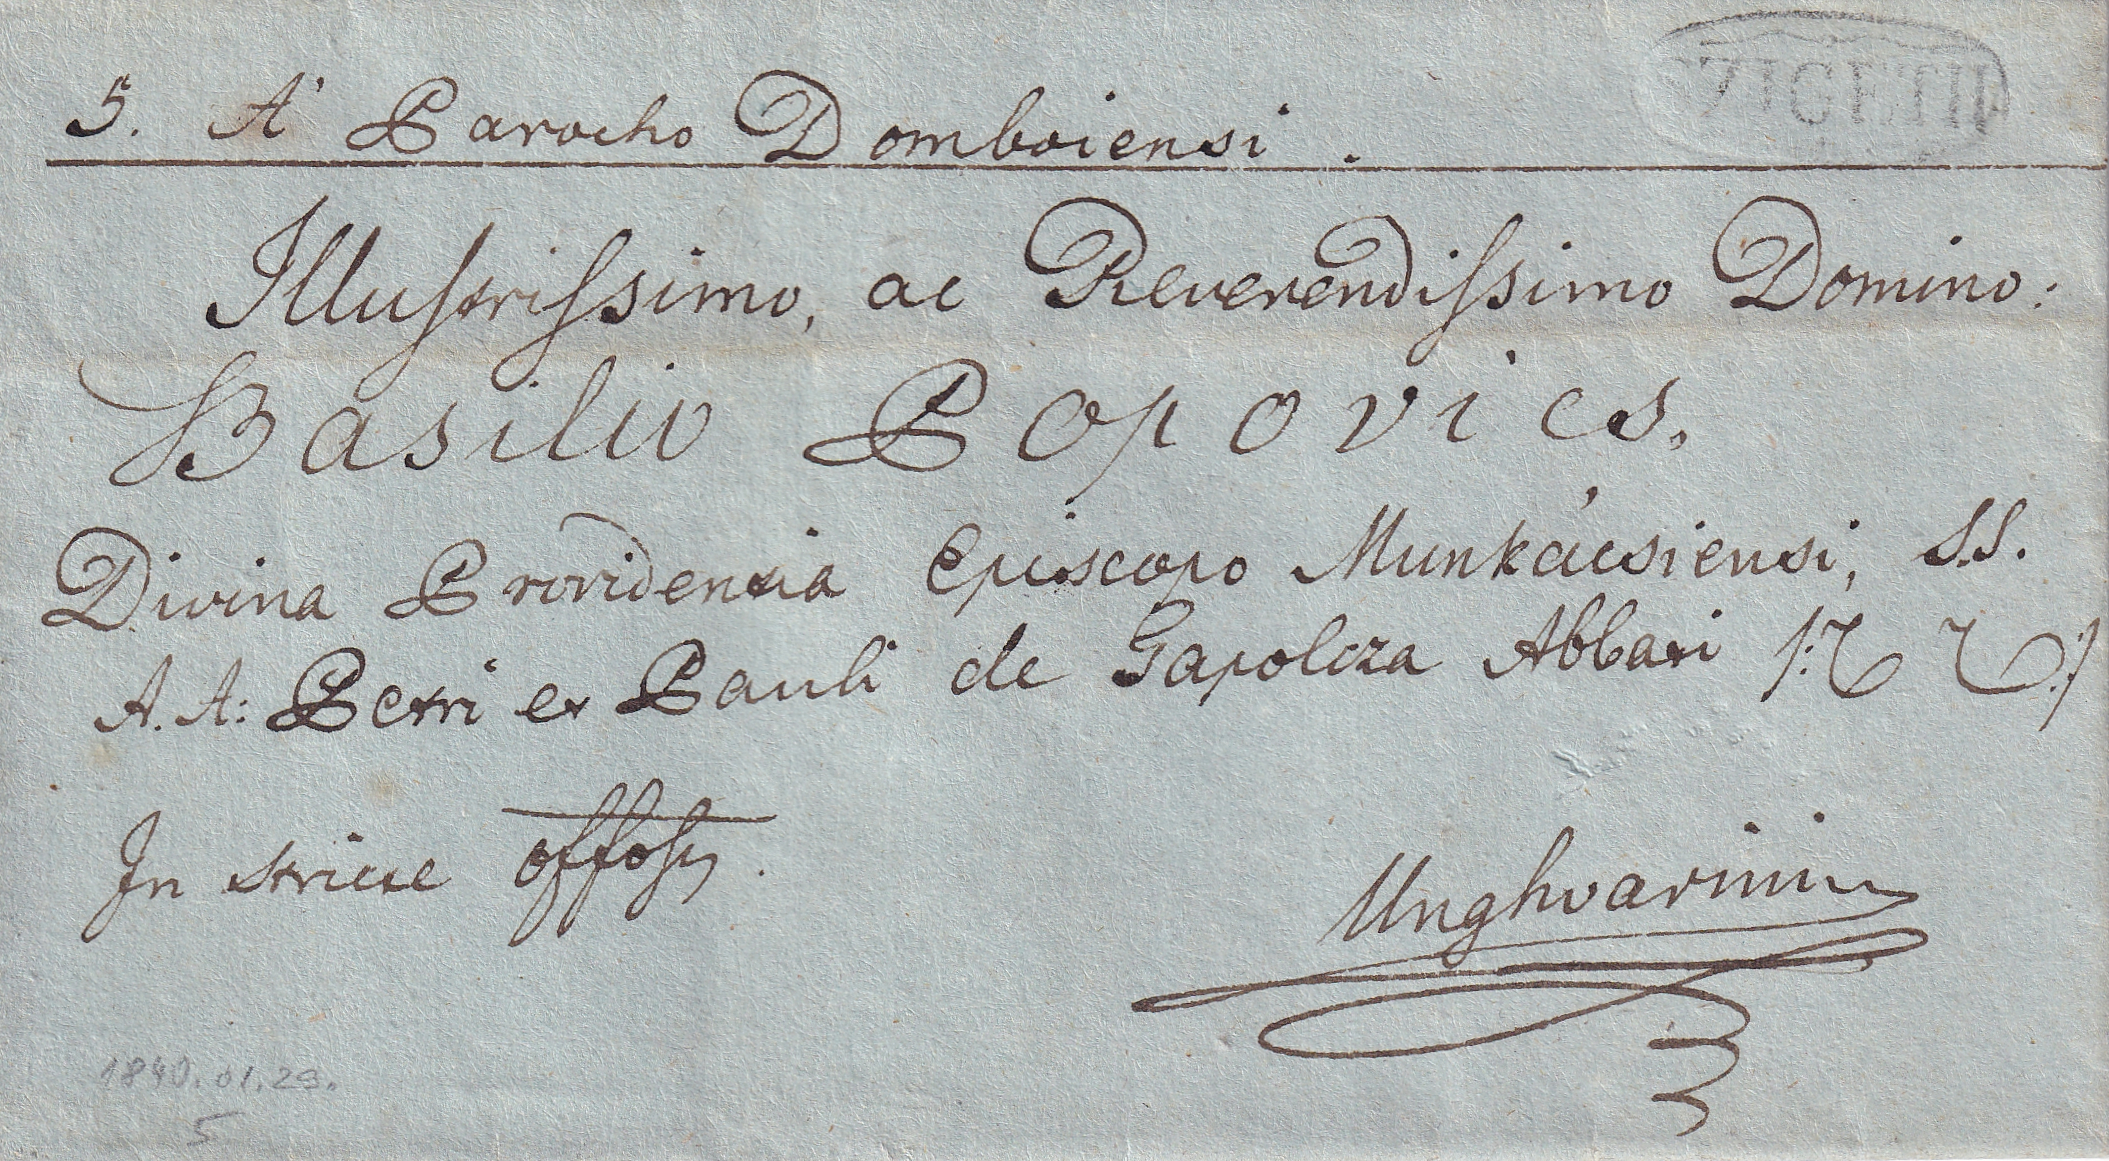 SZIGETH
5. A' Parocho Domboiensi.
Illustrissimo, ac Reverendissimo Domino:
Basilio Popovics,
Divina Providentia Episcopo Munkácsiensi, S.S.
A.A: Petri et Pauli de Tapolcza Abbati
In stricte offosis.
Unghvarini
1840.01.29.
5